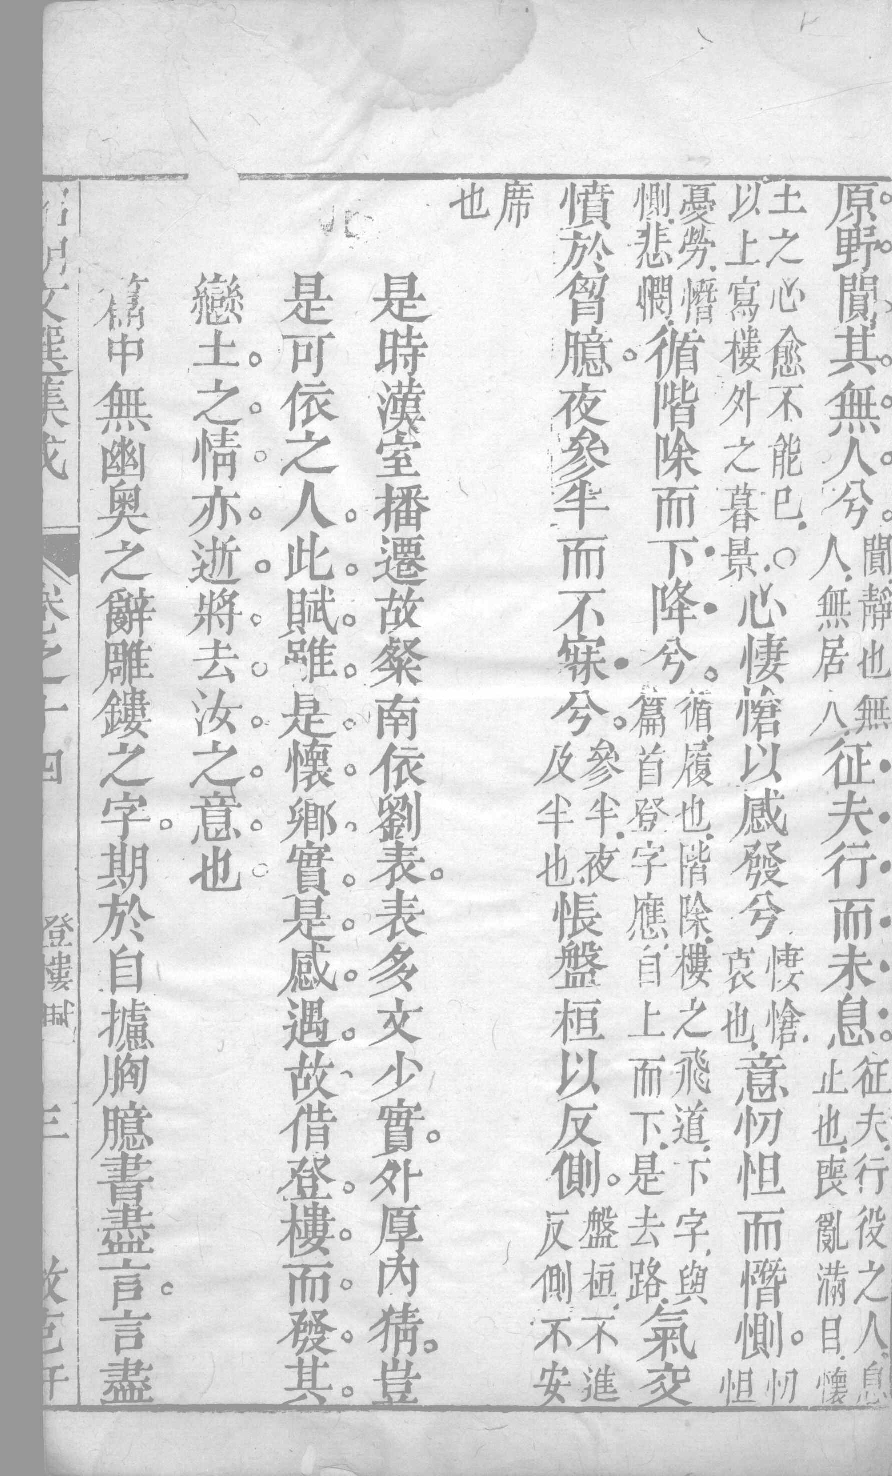 原野闃其無人兮闃靜也無人無居人征夫行而未息征夫行役之人息止也喪亂滿目懷
土之心愈不能已〇以上寫樓外之暮景心悽愴以感發兮悽愴哀也意忉怛而憯惻忉怛
憂勞憯惻悲憫循階除而下降兮循履也階除樓之飛道下字與篇首登字應自上而下是去路氣交
憤於胷臆夜參半而不寐兮參半夜及半也悵盤桓以反側盤桓不進反側不安
席也
是時漢室播遷故粲南依劉表表多文少實外厚內猜豈
是可依之人此賦雖是懷鄉實是感遇故借登樓而發其
戀土之情亦逝將去汝之意也
篇中無幽奧之辭雕鏤之字期於自攄胸臆書盡言言盡
昭明文選集成 卷之十四 登樓賦 三